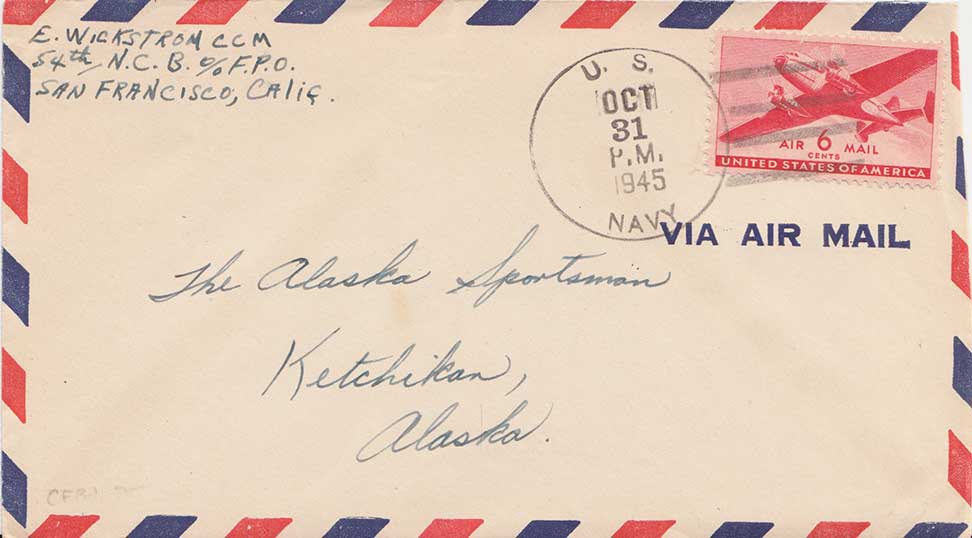 E. WICKSTROM CCM
54th N.C.B. c/o F.P.O.
SAN FRANCISCO, CALIF.
U. S.
OCT
31
P.M.
1945
NAVY
AIR 6 MAIL
CENTS
UNITED STATES OF AMERICA
VIA AIR MAIL
The Alaska Sportsman
Ketchikan,
Alaska.